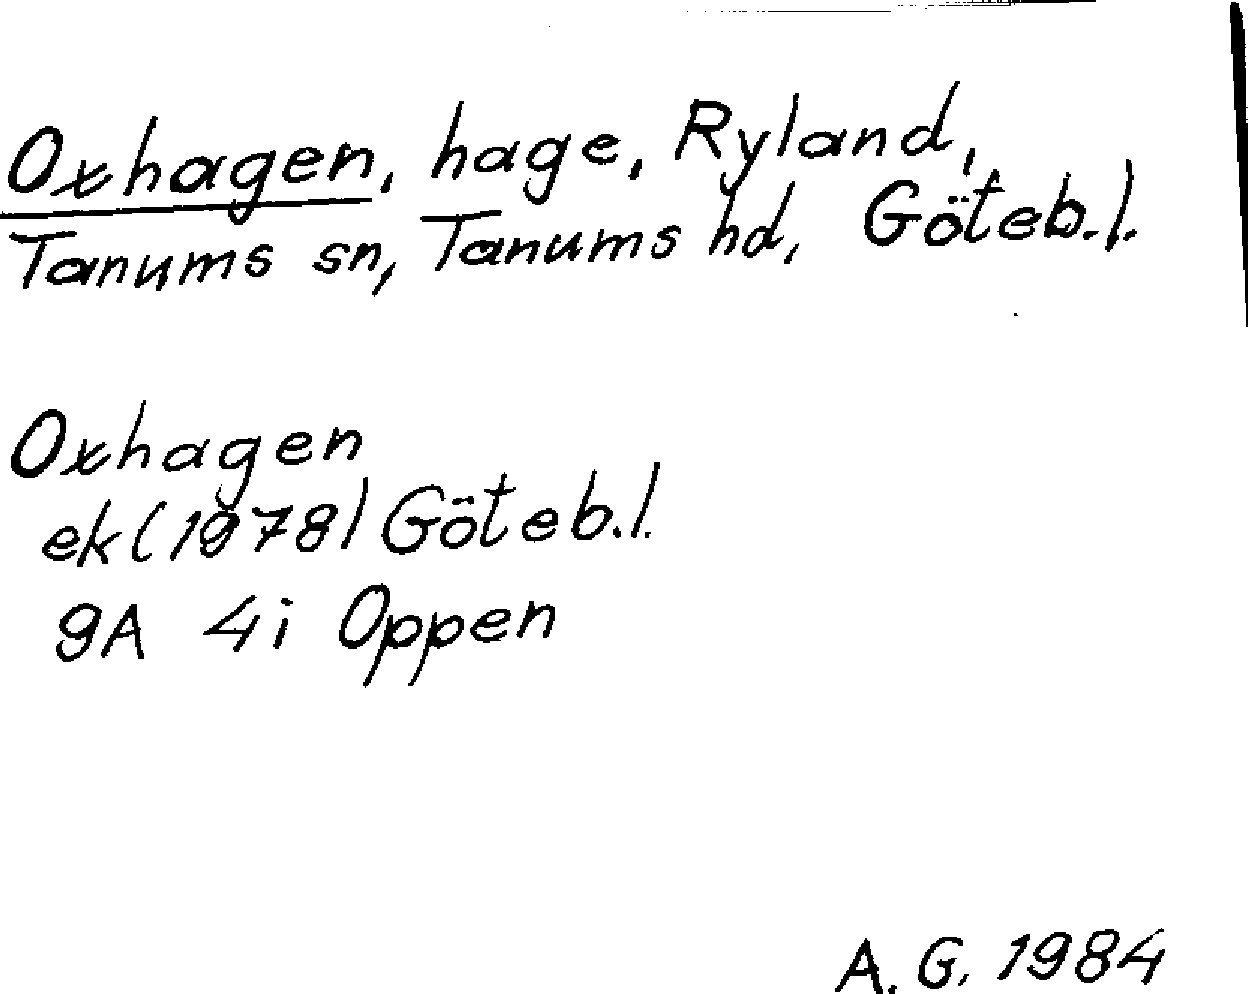 Oxhagen, hage, Ryland,
Tanums sn, Tanums hd, Göteb.l.
Oxhagen
ek (1978) Göteb.l.
9A 4i Oppen
A.G. 1984